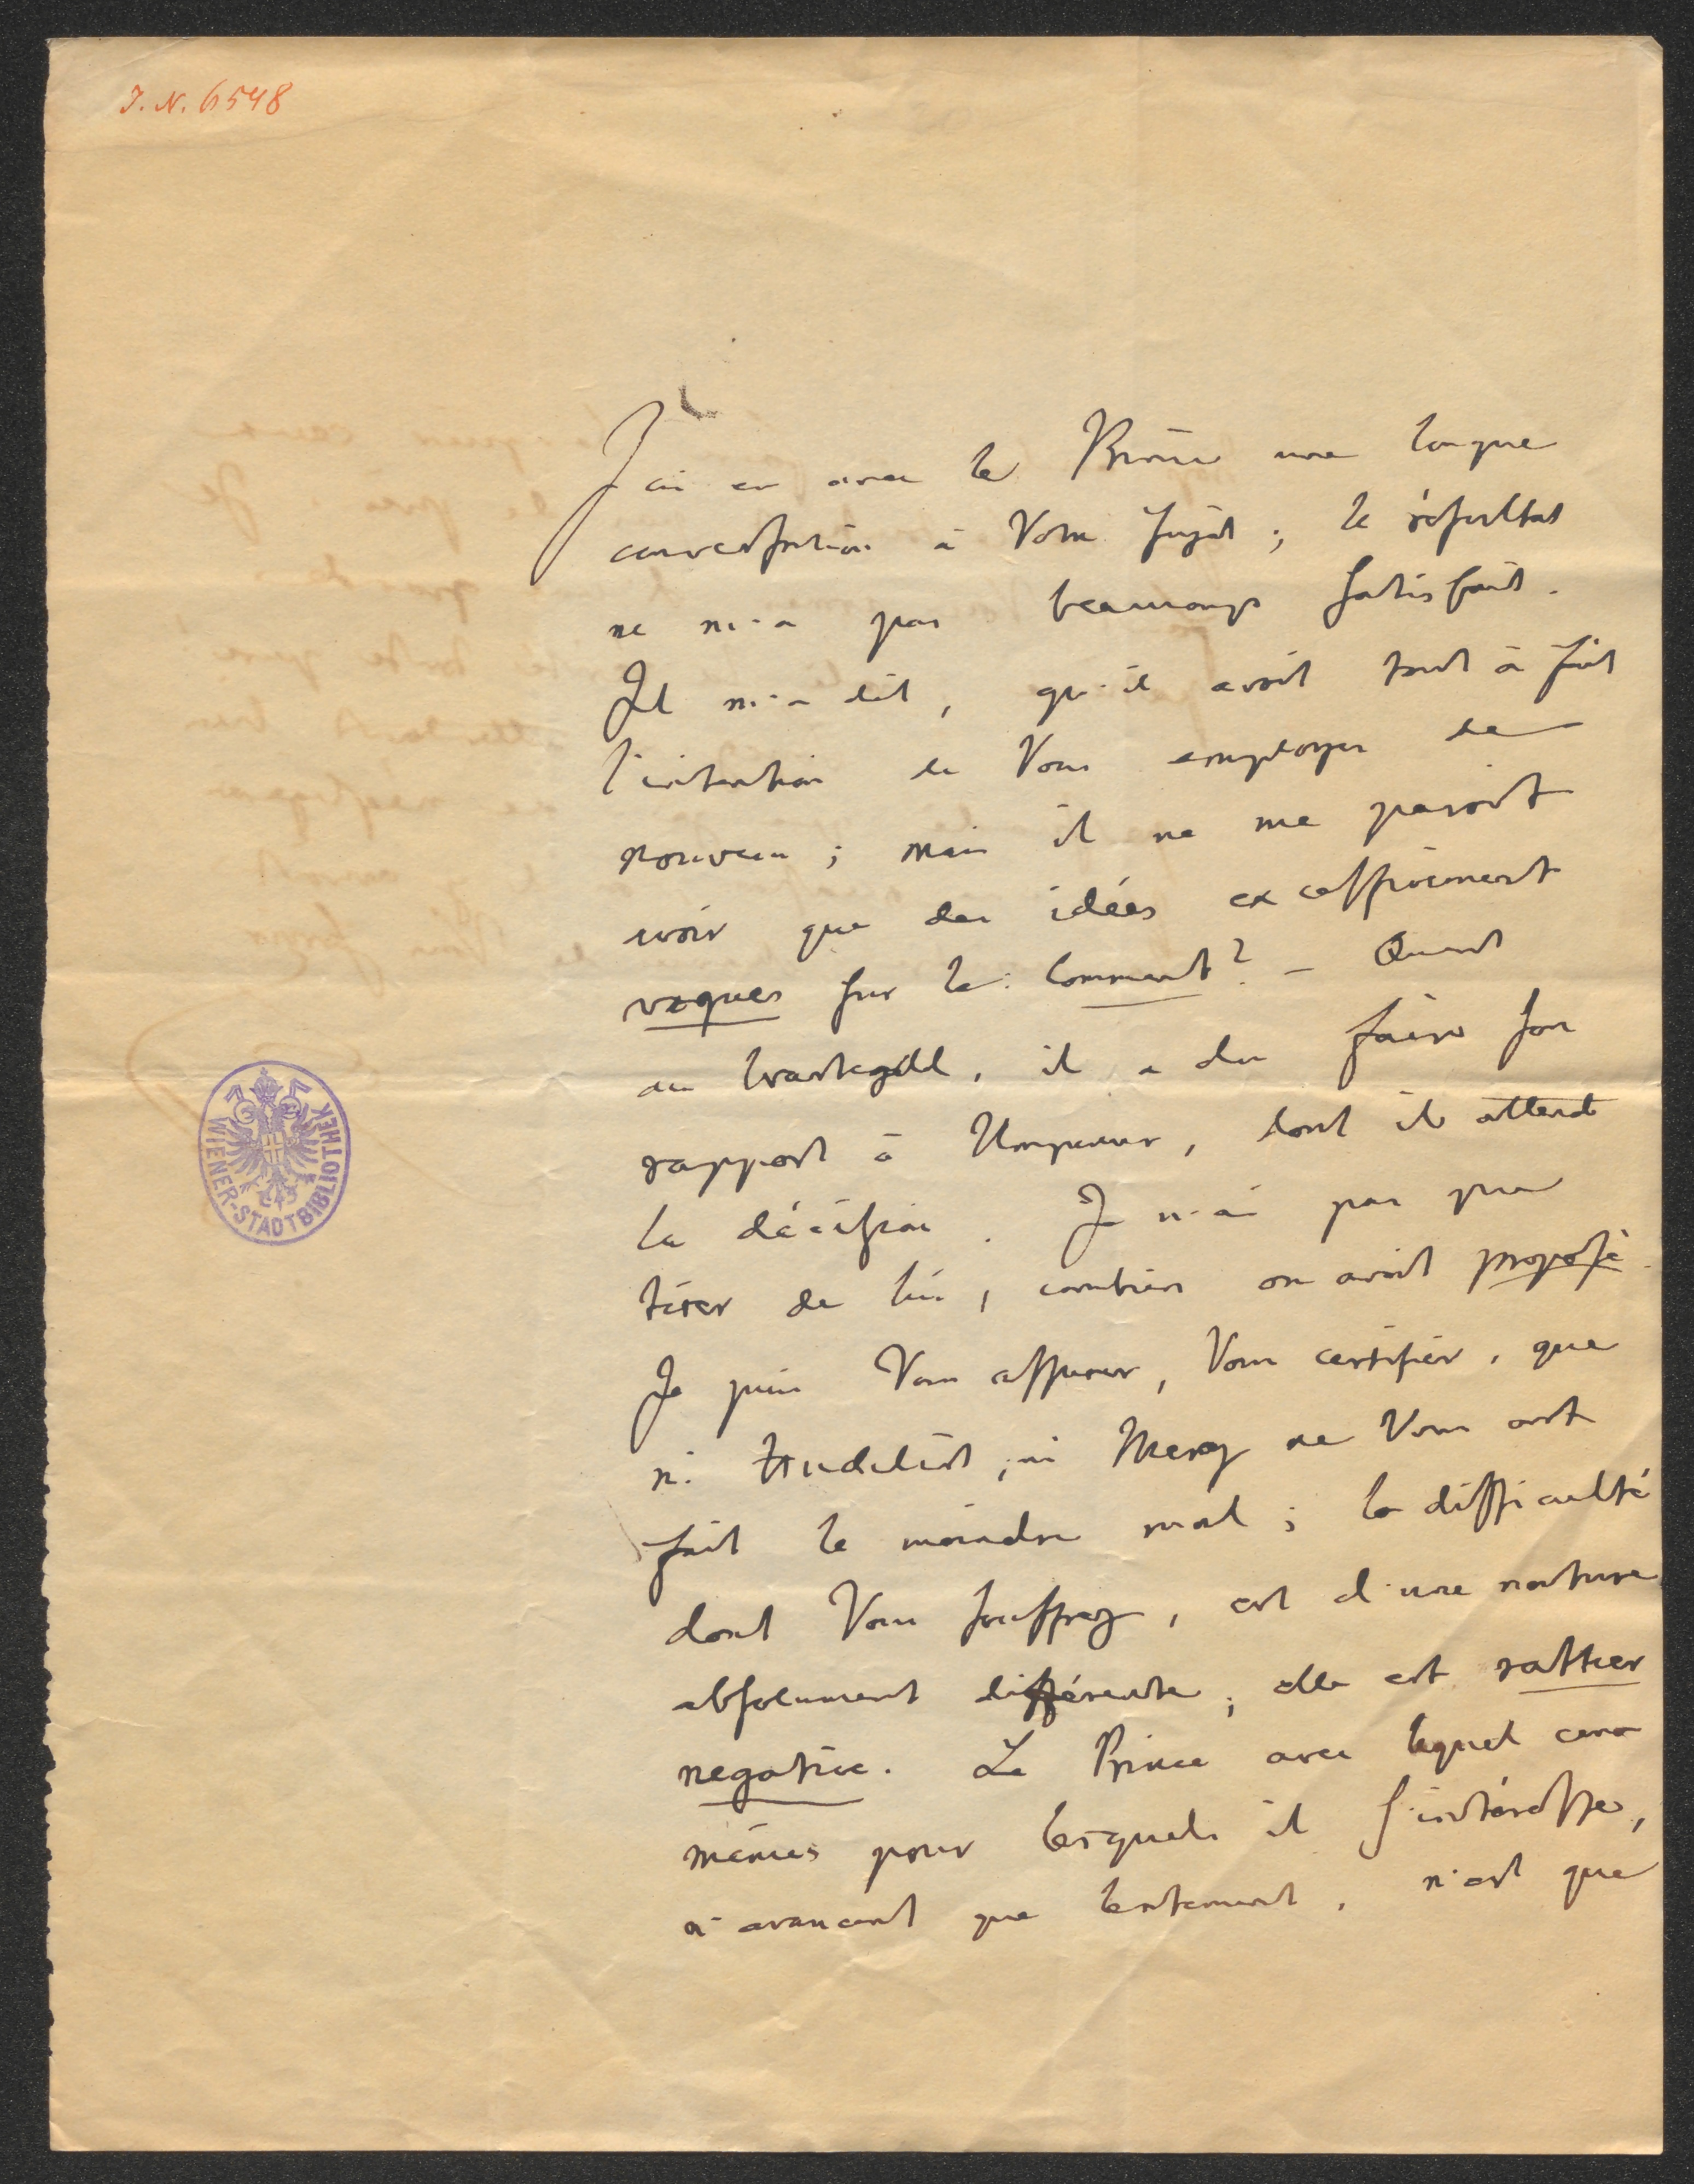 J. N. 6548
J'ai eu avec le Prince une longue
conversation à Votre sujet; le résultat
ne m'a pas beaucoup satisfait.
Il m'a dit, qu'il avoit tout à fait
l'intention de Vous employer de
nouveau; mais il ne me paroit
avoir que des idées excessivement
vagues sur le: Comment? – Quant
au Wartegeld, il a du faire son
rapport à l'Empereur, dont il attend
la décision. Je n'ai pas pu
tirer de lui, combien on avoit proposé.
Je puis Vous assurer, Vous certifier, que
ni Hudelist, ni Mercy ne Vous ont
fait le moindre mal; la difficulté
dont Vous souffrez, est d'une nature
absolument différente; elle est rather
negative. Le Prince avec lequel ceux
mêmes pour lesquels il s'intéresse,
n'avancent que lentement, n'est que
WIENER-STADTBIBLIOTHEK